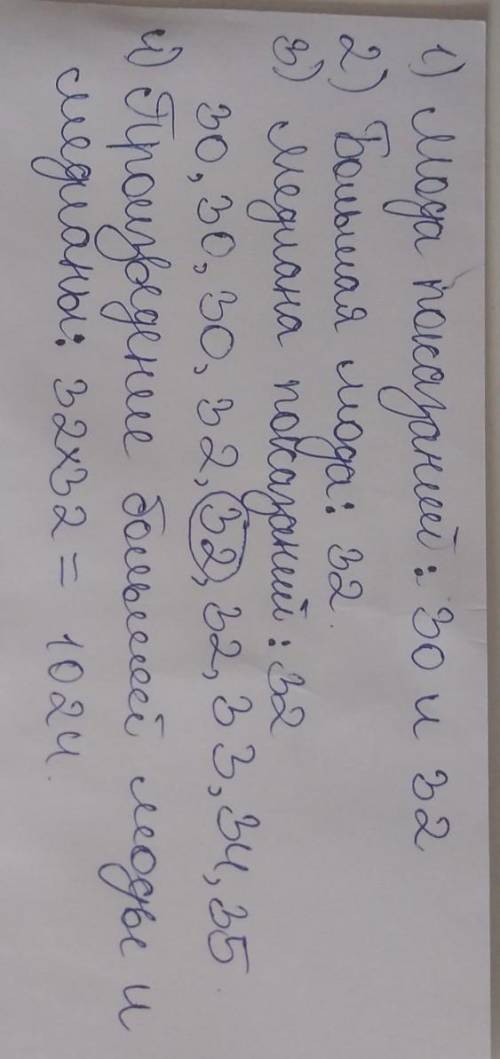 1) Мода показаний: 30 и 32
2) Большая мода: 32.
3) медиана показаний: 32
30, 30, 30, 32, 32, 32, 33, 34, 35.
4) Произведение большей моды и
медианы: 32×32 = 1024.